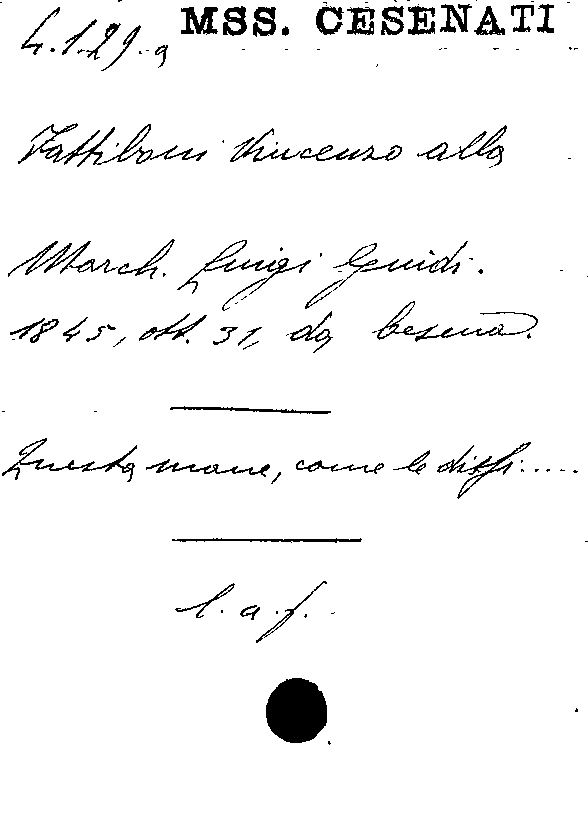 4.1.29.a MSS. CESENATI
Fattiboni Vincenzo alla
March. Luigi Guidi.
1845, ott. 31, da Cesena.
Questa mane, come le dissi.....
l. a. f.